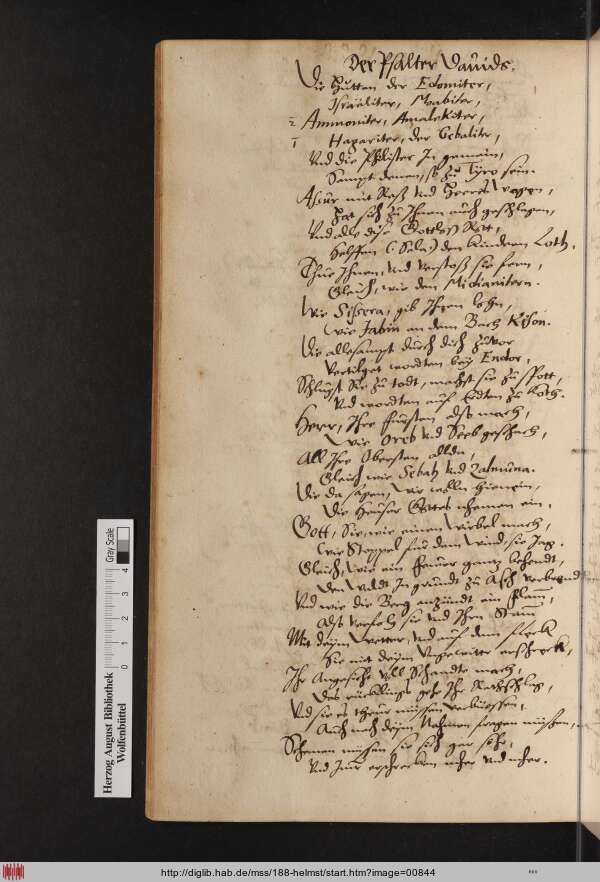 Der Psalter Dauids.
Die Hutten der Edomiter,
Israeliter, Moabiter,
2 Ammoniter, Amalekiter,
1 Hagariter, der Gebaliter,
Vnd die Philister In gemein,
Sampt denen, so zu Tyro sein.
Assur mit Roß vnd Heeres Wagen,
Hat sich zu Ihnen auch geschlagen,
Vnd alle dise Gottloß Rott,
Helffen (: Sela :) den Kindern Loth.
Thue Ihnen, vnd verstoß sie fern,
Gleich, wie den Midianitern.
Wie Sissera, gib Ihnen lohn,
Wie Jabin an dem Bach Kison.
Die allesampt durch dich zuvor
Vertilget worden bey Endor,
Schlugst Sie zu todt, machst sie zu spott,
Vnd worden auf Erden zu Koth.
Herr, Ihre fursten also mach,
Wie Oreb vnd Seeb geschach,
All Ihre Obersten allda,
Gleich wie Sebah vnd Zalmuna.
Die da sagen, wir wolln hienein,
Die Heuser Gottes nhemen ein.
Gott, Sie, wie einen Wirbel mach,
Wie Stoppel fur dem Wind, sie Jag.
Gleich, wie ein feuer gantz behendt,
Den Waldt In grundt zu Asch verbrendt
Vnd wie die Berg anzündt ein flam,
Also verfolg sie vnd Ihrn Stam
Mit deinem Wetter, vnd auf dem fleck
Sie mit deinem Vngewitter erschreck,
Ihr Angesicht voll Schande mach,
Das rücklings gehe Ihr
Vnd sie es theur müssen
Auch nach deinem Nahmen fragen müssen,
Schemen müssen sie sich gar sehr,
Vnd Immer erschrecken mher vnd mher.
Herzog August Bibliothek
Wolfenbüttel
Gray Scale
0 1 2 3 4
http://diglib.hab.de/mss/188-helmst/start.htm?image=00844